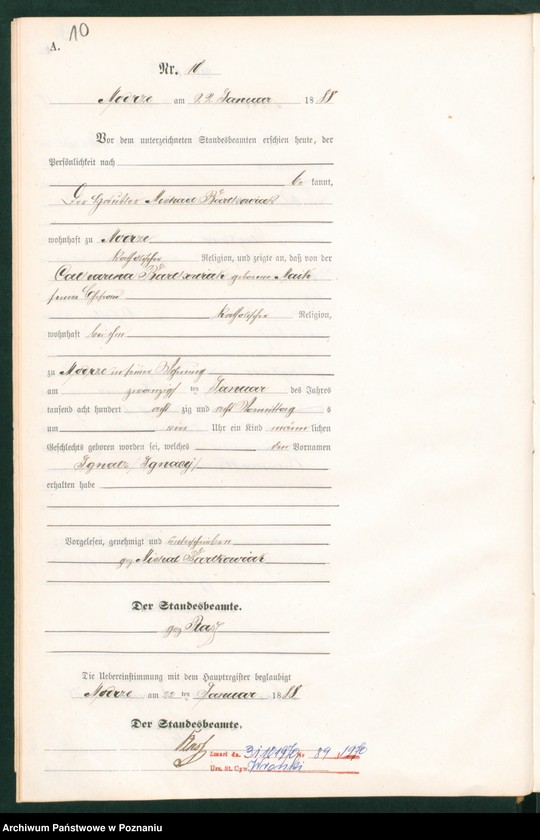 10
A.
Nr. 10
Modrze am 22. Januar 1888
Vor dem unterzeichneten Standesbeamten erschien heute, der
Persönlichkeit nach
be kannt,
Der Häusler Michael Bartkowiak
wohnhaft zu Modrze
katholischer Religion, und zeigte an, daß von der
Catharina Bartkowiak geborene
seiner Ehefrau
katholischer Religion,
wohnhaft bei ihm
zu Modrze in seiner Wohnung
am zwanzigsten Januar des Jahres
tausend acht hundert acht zig und acht Vormittag s
um Uhr ein Kind männlichen
Geschlechts geboren worden sei, welches den Vornamen
Ignatz (Ignacy)
erhalten habe
Vorgelesen, genehmigt und unterschrieben
gez Michal Bartkowiak
Der Standesbeamte.
gez
Die Uebereinstimmung mit dem Hauptregister beglaubigt
Modrze am 22 ten Januar 1888
Der Standesbeamte.
Zmarł dn. 89 1970
Urz. St. Cyw.
Archiwum Państwowe w Poznaniu